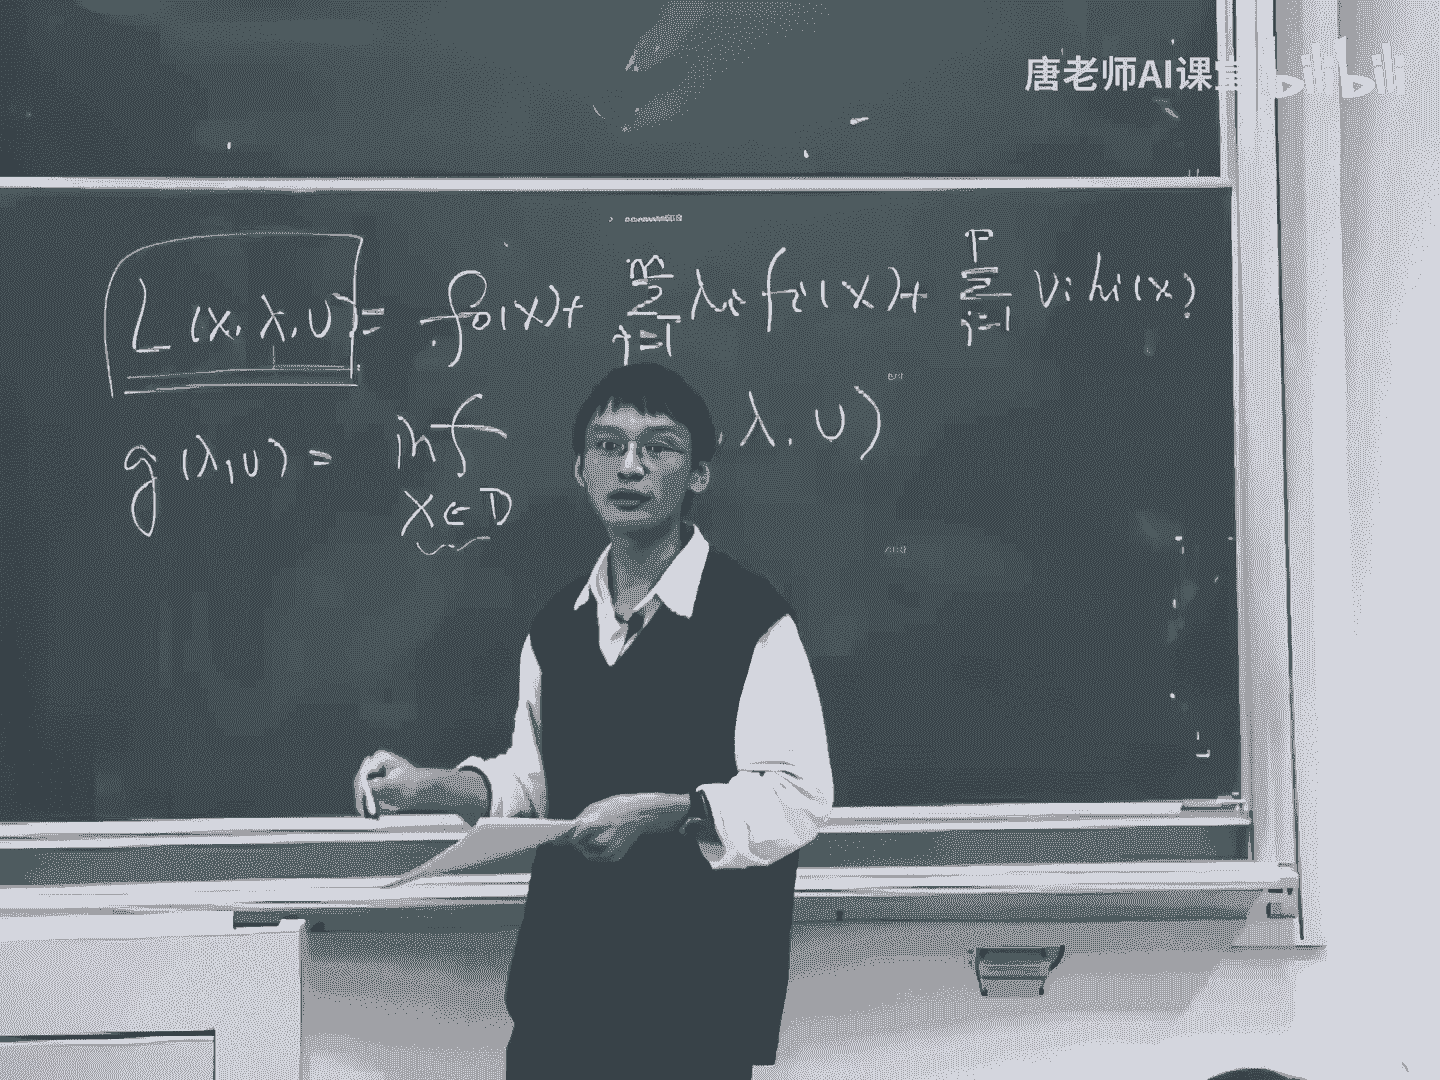 唐老师AI课堂 bilibili
L(x, λ, υ) = f₀(x) + ∑ᵢ₌₁ᵐ λᵢ fᵢ(x) + ∑ᵢ₌₁ᴾ νᵢ hᵢ(x)
g(λ, υ) = inf , λ, υ)
x ∈ D